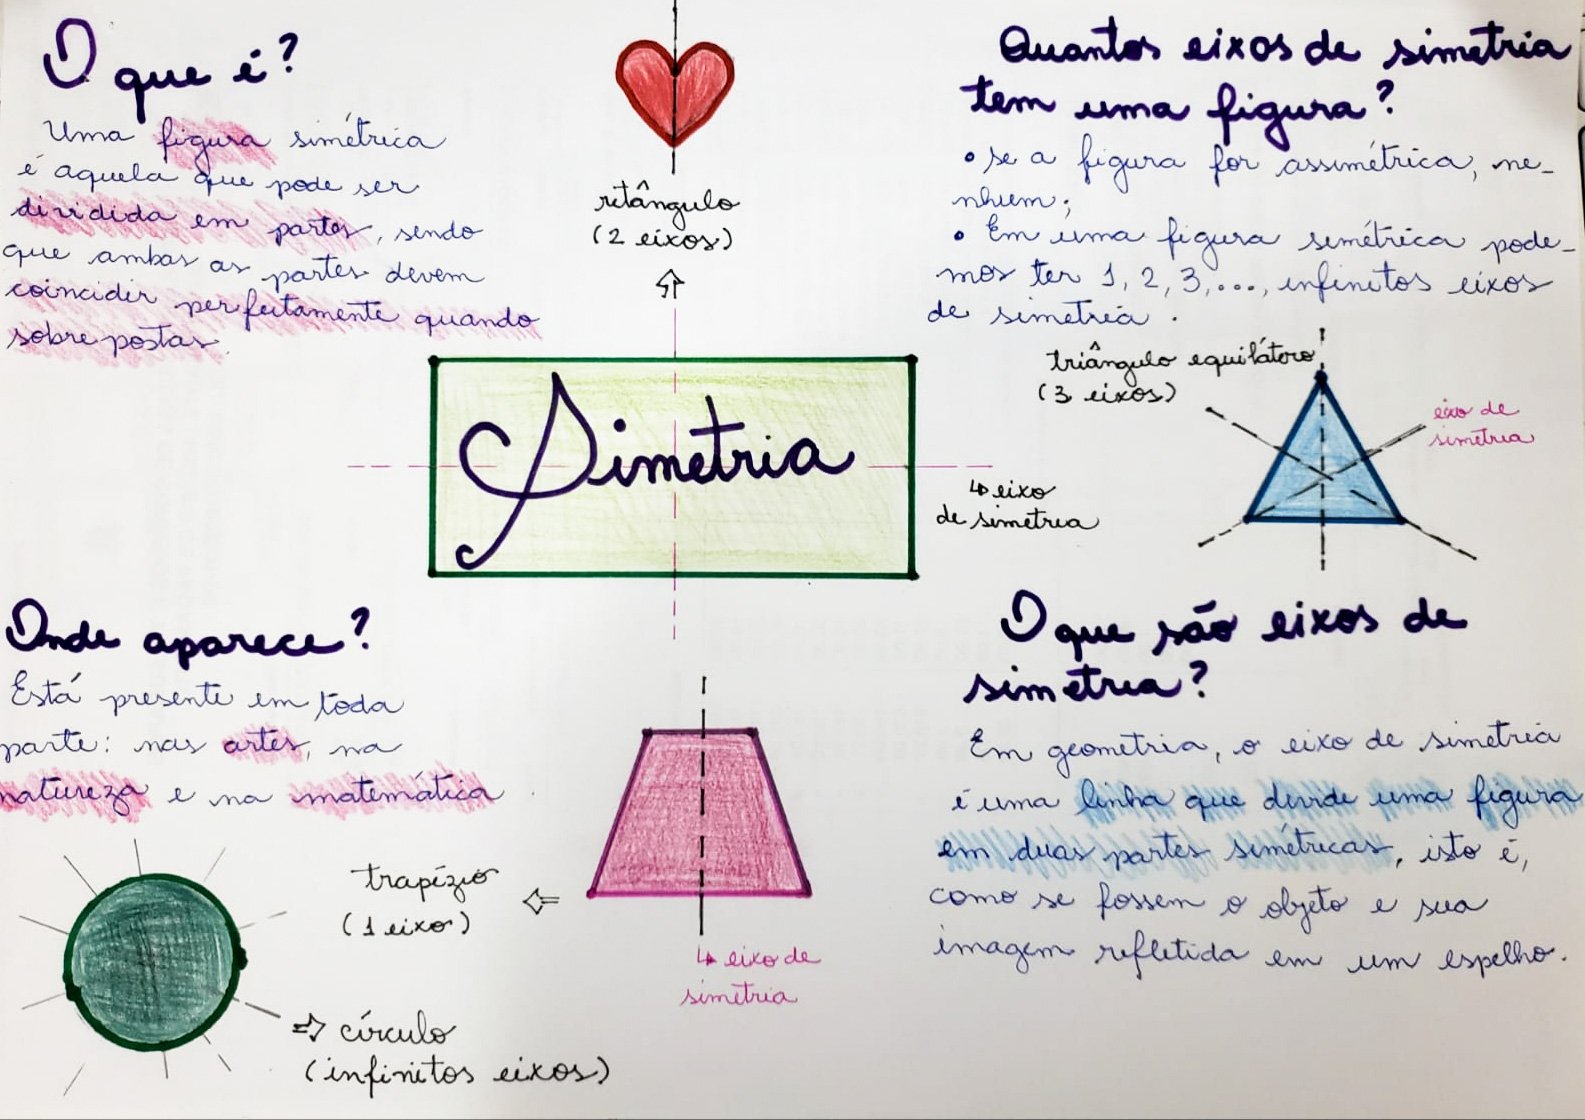 O que é?
Uma figura simétrica
é aquela que pode ser
dividida em partes, sendo
que ambas as partes devem
coincidir perfeitamente quando
sobrepostas.
retângulo
(2 eixos)
Quantos eixos de simetria
tem uma figura?
• se a figura for assimétrica, ne-
nhum;
• Em uma figura simétrica pode-
mos ter 1, 2, 3, ..., infinitos eixos
de simetria.
triângulo equilátero
(3 eixos)
eixo de
simetria
Simetria
↳ eixo
de simetria
Onde aparece?
Está presente em toda
parte: nas artes, na
natureza e na matemática
trapézio
(1 eixo)
↳ eixo de
simetria
⇒ círculo
(infinitos eixos)
O que são eixos de
simetria?
Em geometria, o eixo de simetria
é uma linha que divide uma figura
em duas partes simétricas, isto é,
como se fossem o objeto e sua
imagem refletida em um espelho.